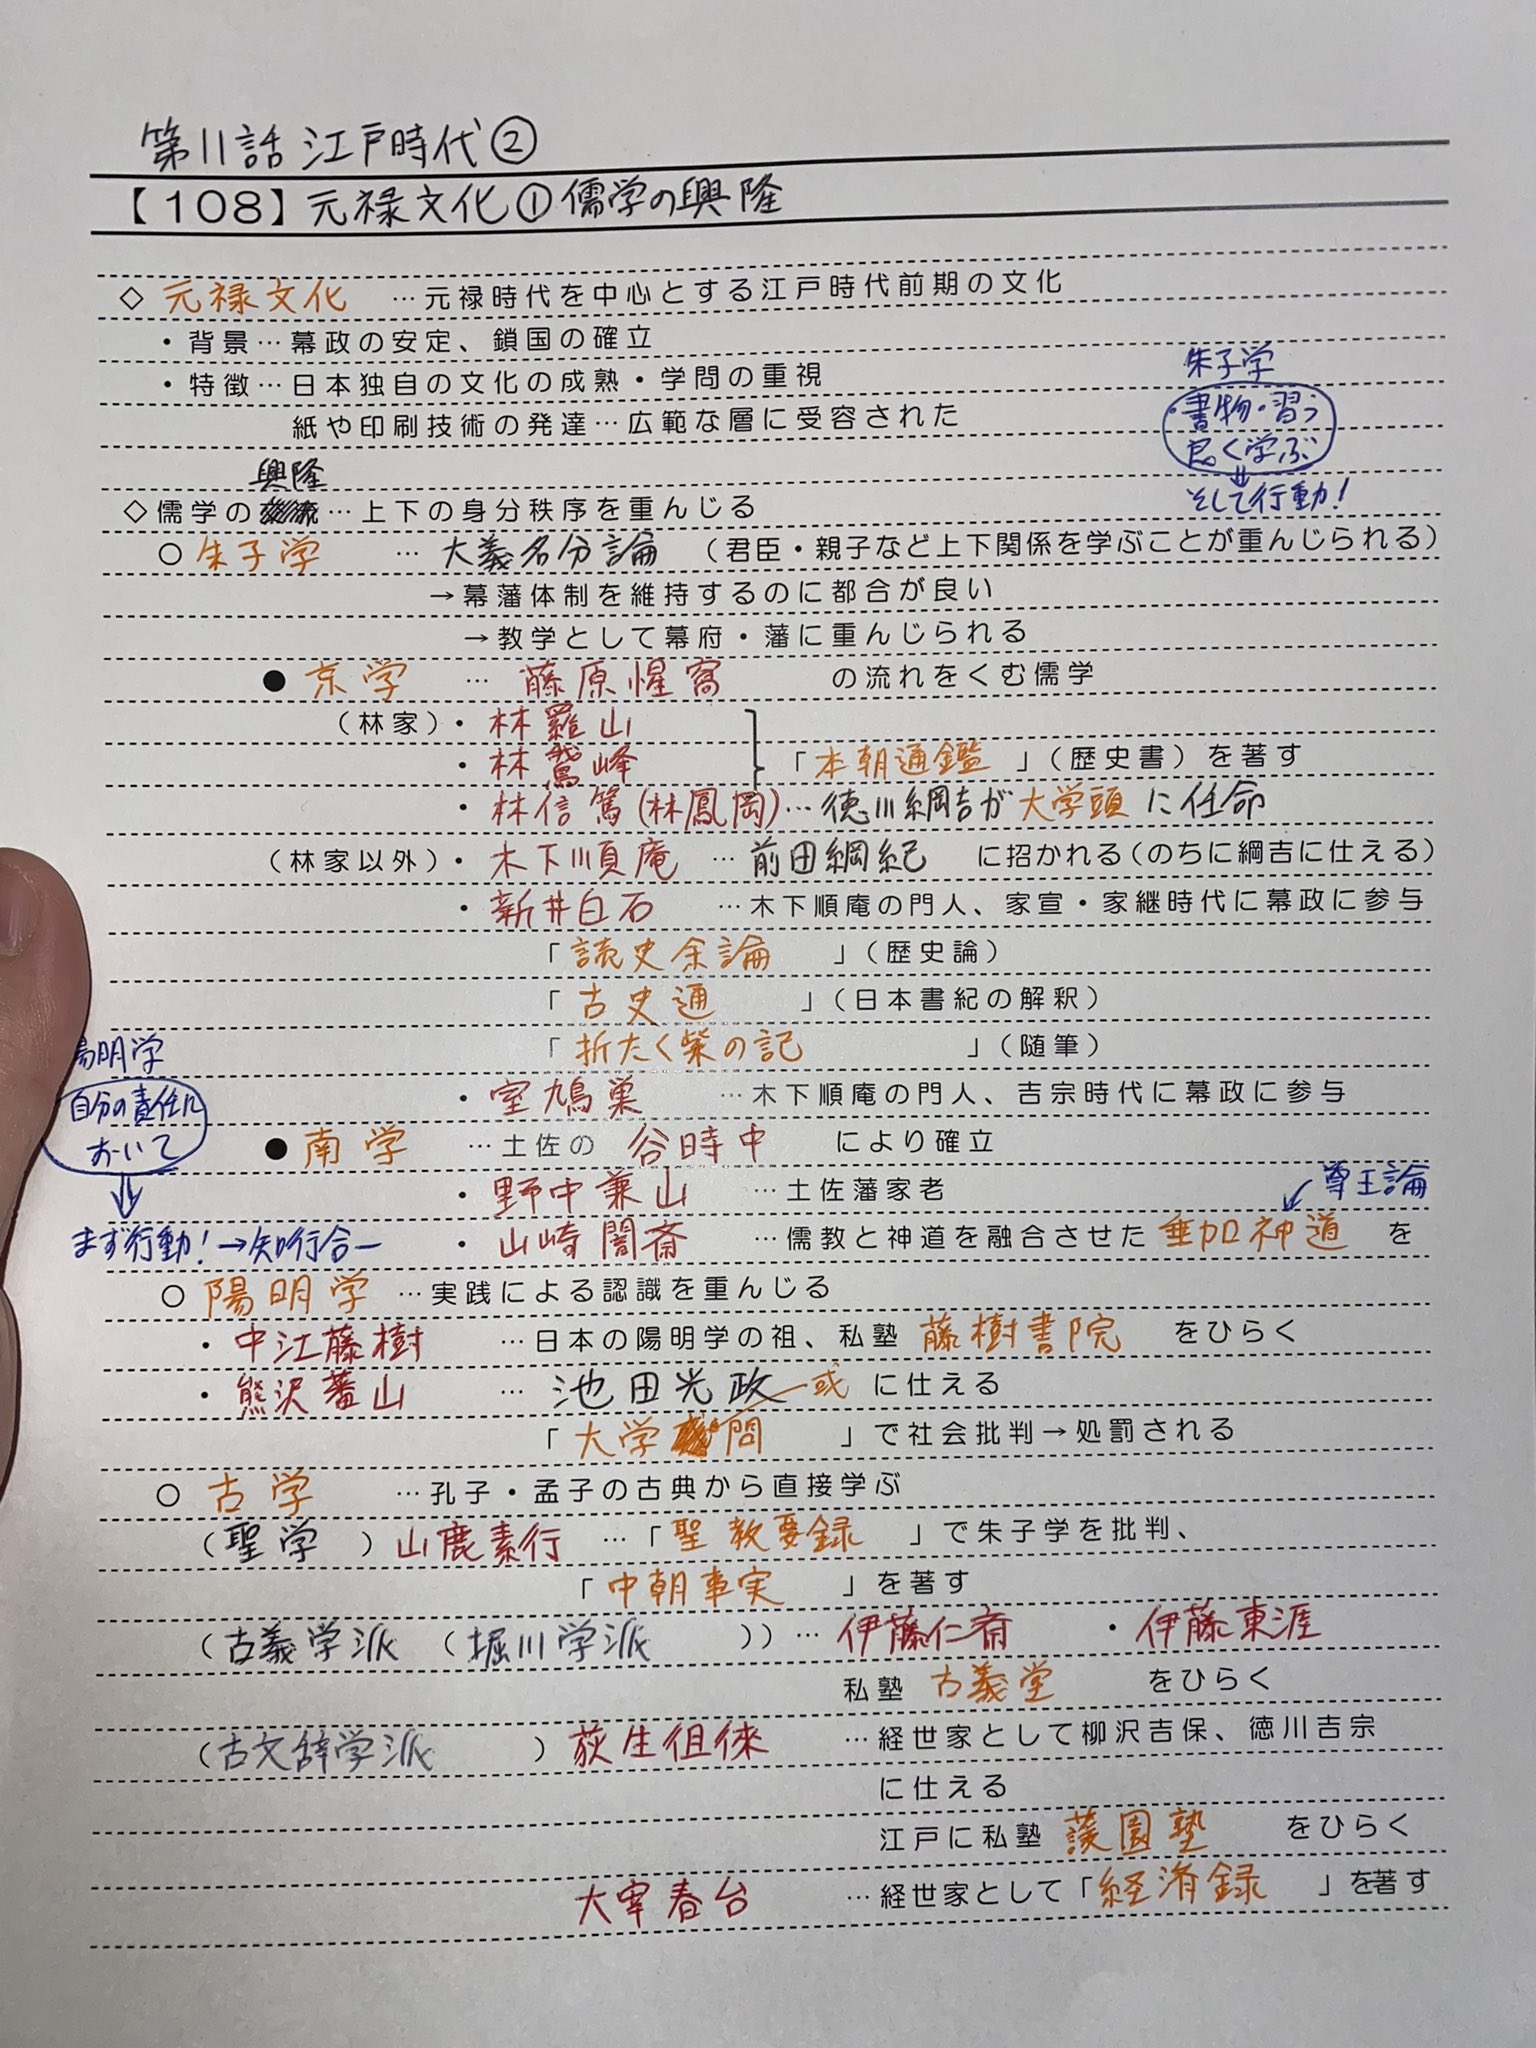 第11話 江戸時代②
【108】元禄文化①儒学の興隆
◇ 元禄文化 …元禄時代を中心とする江戸時代前期の文化
・背景…幕政の安定、鎖国の確立
・特徴…日本独自の文化の成熟・学問の重視
紙や印刷技術の発達…広範な層に受容された
朱子学
・書物・習う
良く学ぶ
⇓
そして行動!
興隆
◇儒学の…上下の身分秩序を重んじる
○朱子学 … 大義名分論 (君臣・親子など上下関係を学ぶことが重んじられる)
→幕藩体制を維持するのに都合が良い
→教学として幕府・藩に重んじられる
●京学 … 藤原惺窩 の流れをくむ儒学
(林家)・林羅山
・林鵞峰 「本朝通鑑」(歴史書)を著す
・林信篤(林鳳岡)…徳川綱吉が大学頭に任命
(林家以外)・木下順庵 …前田綱紀 に招かれる(のちに綱吉に仕える)
・新井白石 …木下順庵の門人、家宣・家継時代に幕政に参与
「読史余論」(歴史論)
「古史通」(日本書紀の解釈)
「折たく柴の記」(随筆)
・室鳩巣 …木下順庵の門人、吉宗時代に幕政に参与
●南学 …土佐の 谷時中 により確立
・野中兼山 …土佐藩家老
尊王論
・山崎闇斎 …儒教と神道を融合させた 垂加神道 を
陽明学
自分の責任に
おいて
⇓
まず行動!→知行合一
○陽明学 …実践による認識を重んじる
・中江藤樹 …日本の陽明学の祖、私塾 藤樹書院 をひらく
・熊沢蕃山 … 池田光政 に仕える
「大学或問」で社会批判→処罰される
○古学 …孔子・孟子の古典から直接学ぶ
(聖学)山鹿素行 …「聖教要録」で朱子学を批判、
「中朝事実」を著す
(古義学派(堀川学派))… 伊藤仁斎 ・伊藤東涯
私塾 古義堂 をひらく
(古文辞学派)荻生徂徠 …経世家として柳沢吉保、徳川吉宗
に仕える
江戸に私塾 蘐園塾 をひらく
太宰春台 …経世家として「経済録」を著す